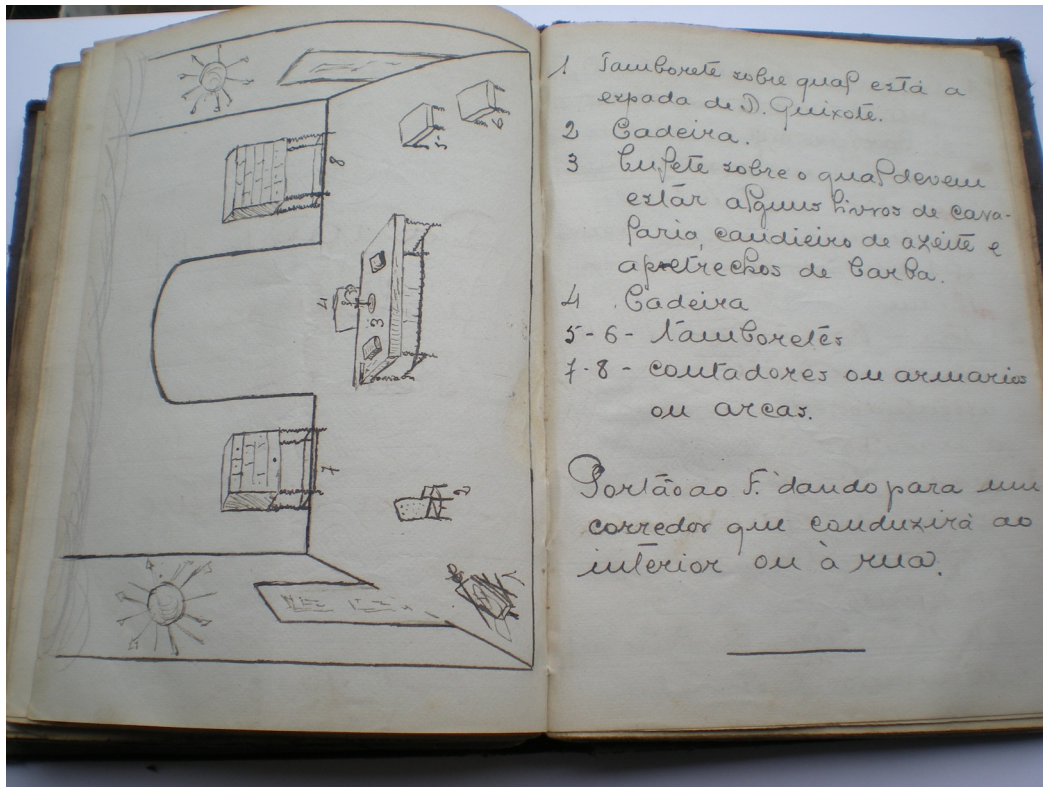 7
8
4
3
2
5
6
1 Tamborete sobre qual está a
espada de D. Quixote.
2 Cadeira.
3 Bufete sobre o qual devem
estár alguns livros de cava-
laria, candieiro de azeite e
apetrechos de barba.
4 Cadeira
5-6- Tamboretes
7-8- contadores ou armarios
ou arcas.
Portão ao F. dando para um
corredor que conduzirá ao
interior ou à rua.